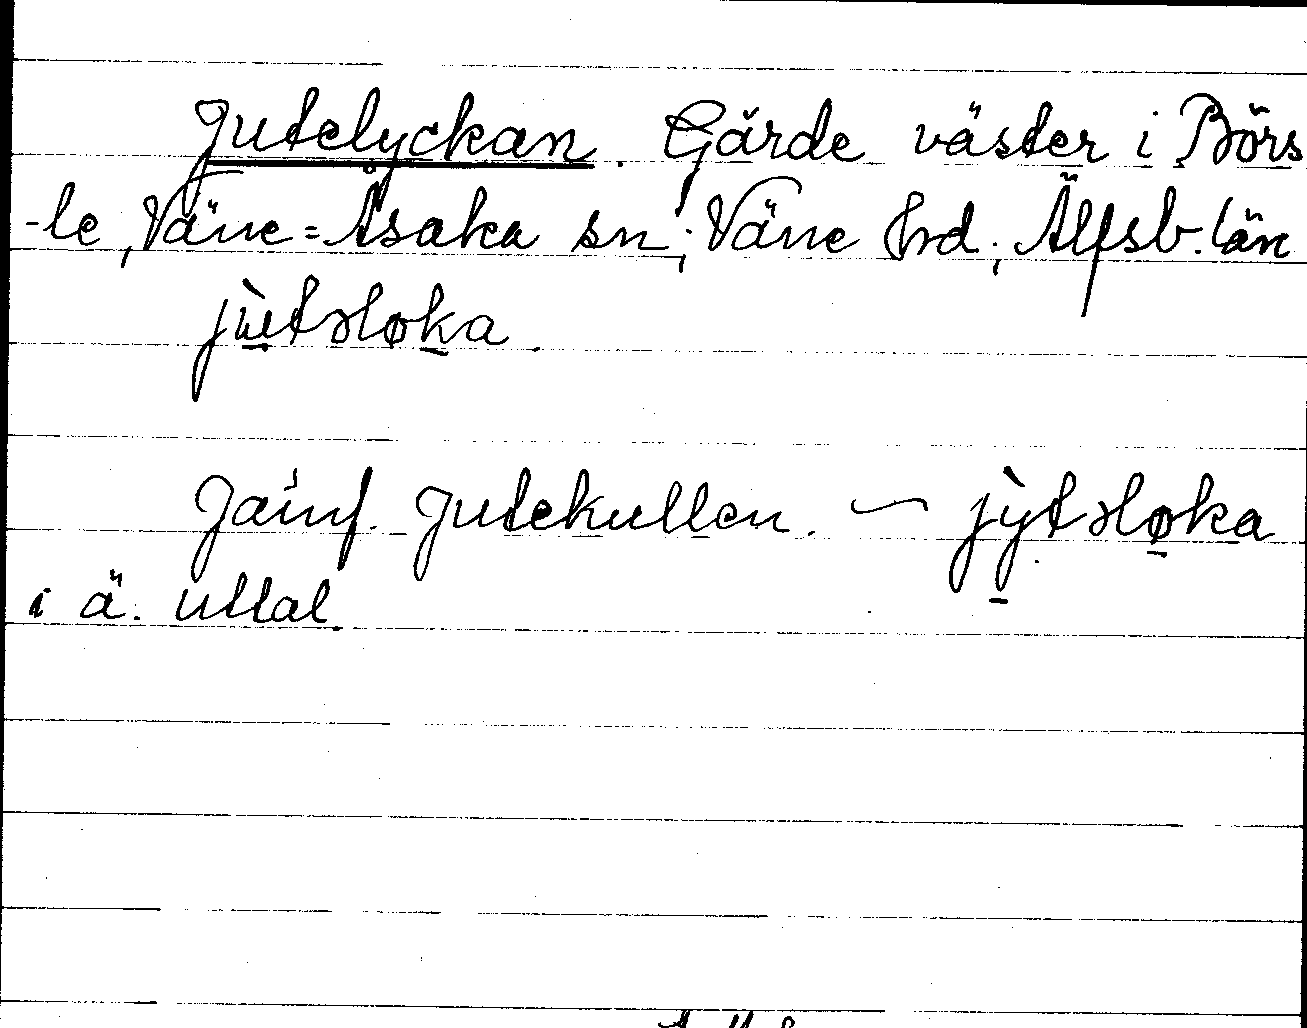 Jutelyckan. Gärde väster i Börs
-le, Väne=Åsaka sn; Väne hrd; Älfsb. län
jùtsløka.
Jämf. Jutekullen. — jỳtsløka
i ä. uttal.